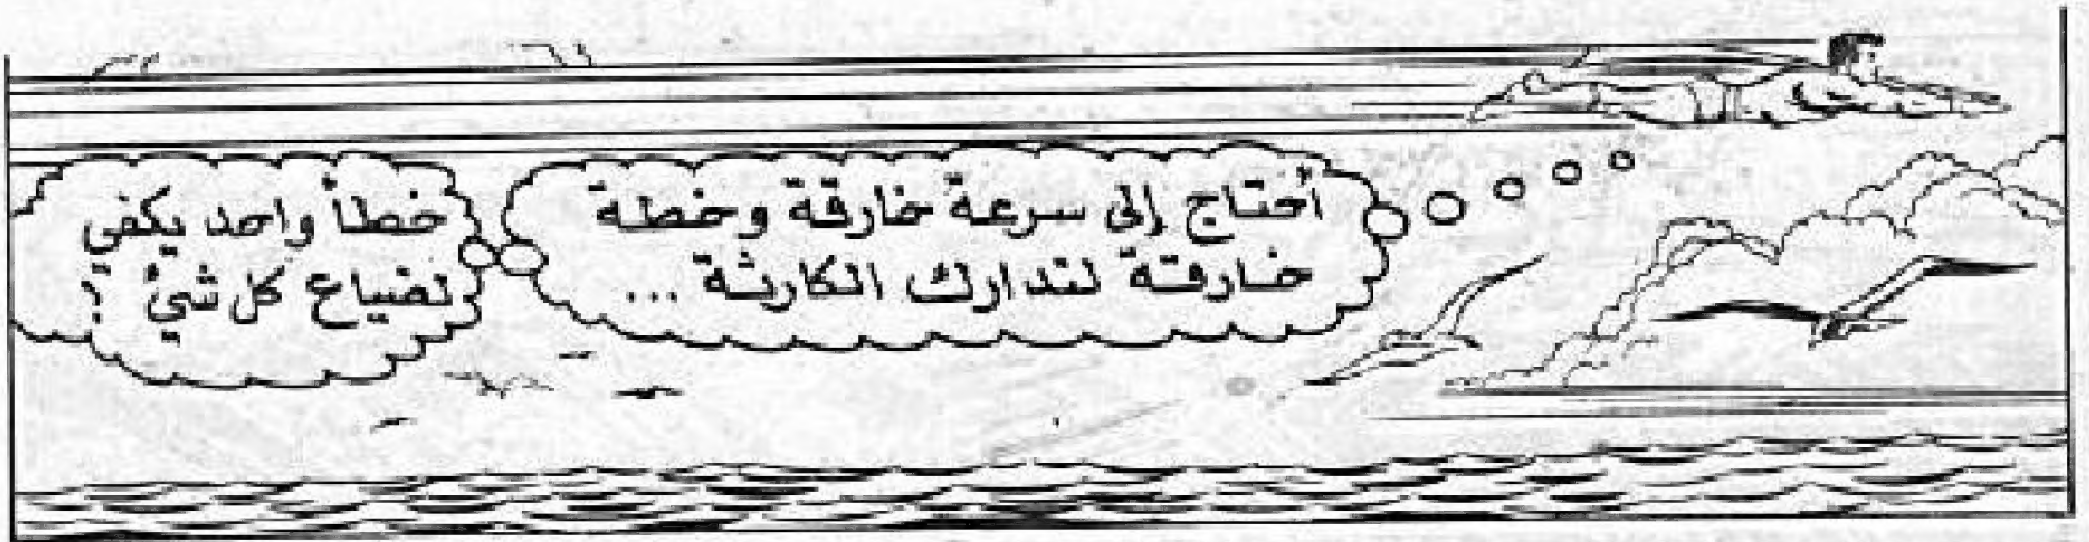 أحتاج إلى سرعة خارقة وخطة
خارقة لتدارك الكارثة ...
خطأ واحد يكفي
لضياع كل شيْ !